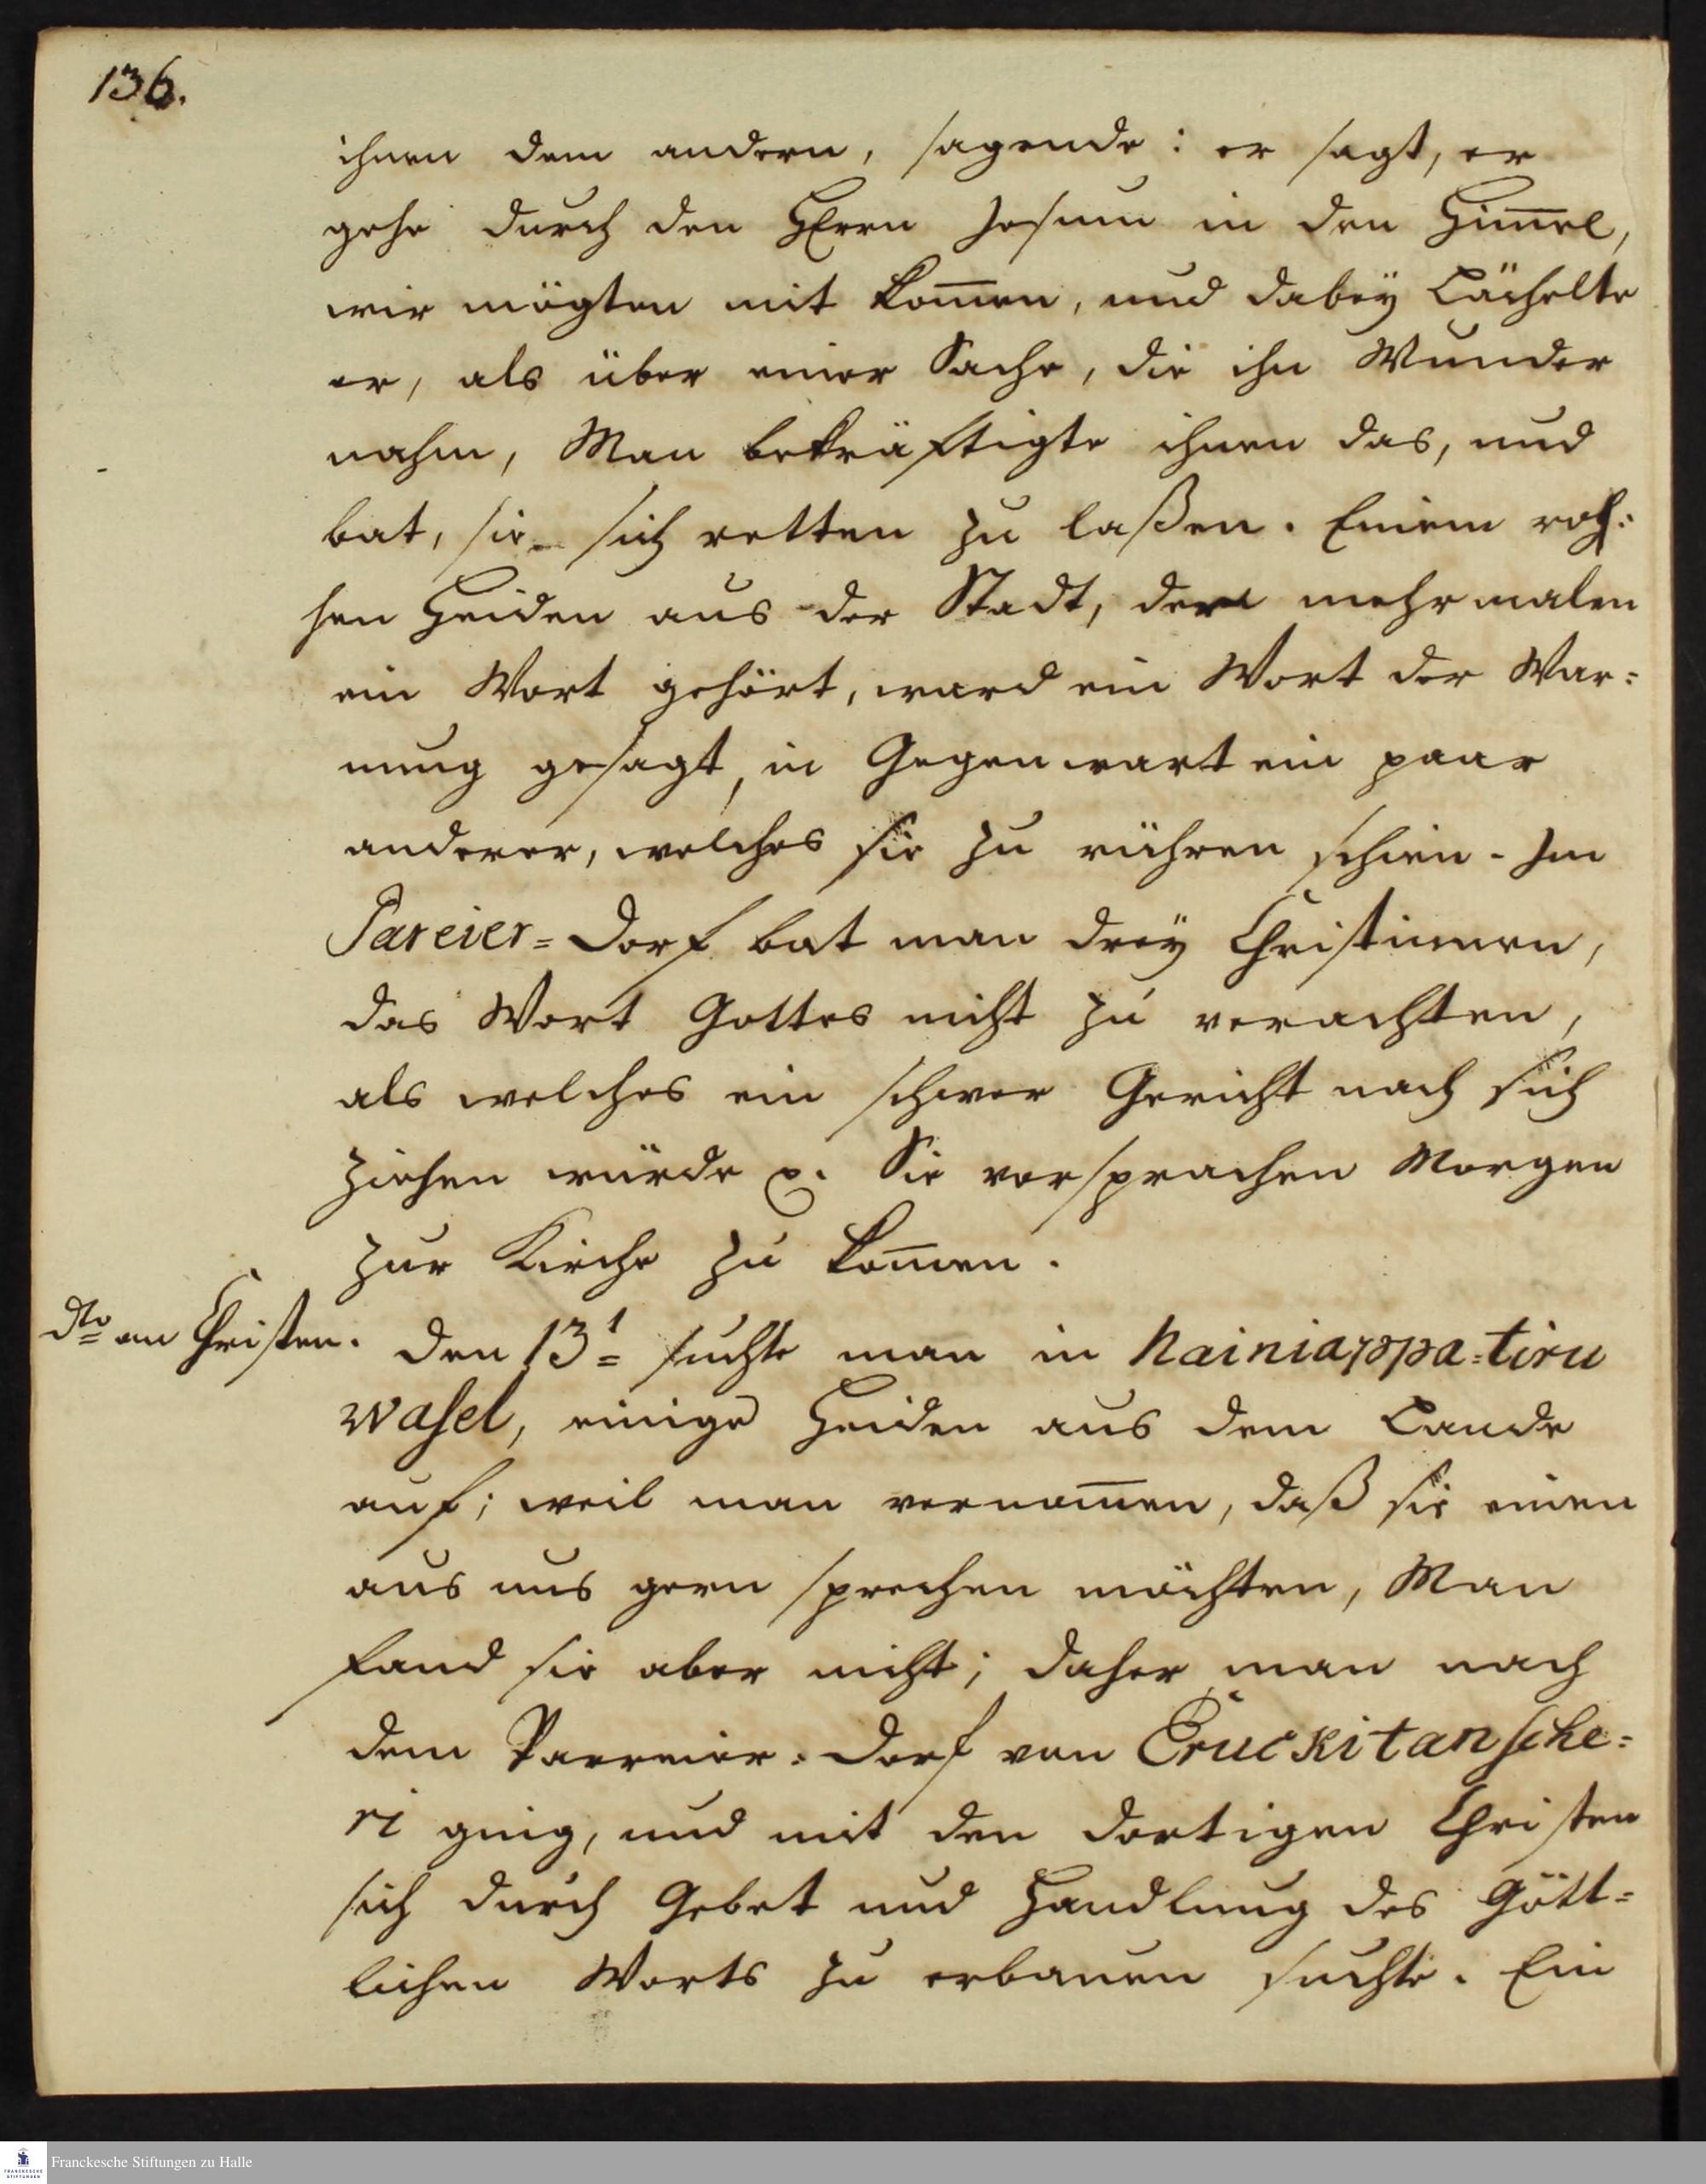 136.
ihnen dem andern, sagende: er sagt, er
gehe durch den HErrn Jesum in den Him̅el,
wir mögten mit kom̅en, und dabeÿ Lächelte
er, als über einer Sache, die ihn Wunder
nahm, Man bekräftigte ihnen das, und
bat, sie sich retten zu laßen. Einem roh:
hen Heiden aus der Stadt, der mehrmalen
ein Wort gehört, ward ein Wort der War=
nung gesagt, in Gegenwart ein paar
anderer, welches sie zu rühren schien. Im
Pareier=Dorf bat man dreÿ Christinnen,
das Wort Gottes nicht zu verachten,
als welches ein schwer Gericht nach sich
ziehen würde p. Sie versprachen Morgen
zur Kirche zu kom̅en.
Dto an Christen. Den 13t= suchte man in Nainiappa=tiru
wasel, einige Heiden aus dem Lande
auf; weil man vernom̅en, daß sie einen
aus uns gern sprechen möchten, Man
fand sie aber nicht; daher man nach
dem Parreier=Dorf von Eruckitansche=
ri ging, und mit den dortigen Christen
sich durch Gebet und Handlung des Gött=
lichen Worts zu erbauen suchte. Ein
Franckesche Stiftungen zu Halle
FRANCKESCHE
STIFTUNGEN